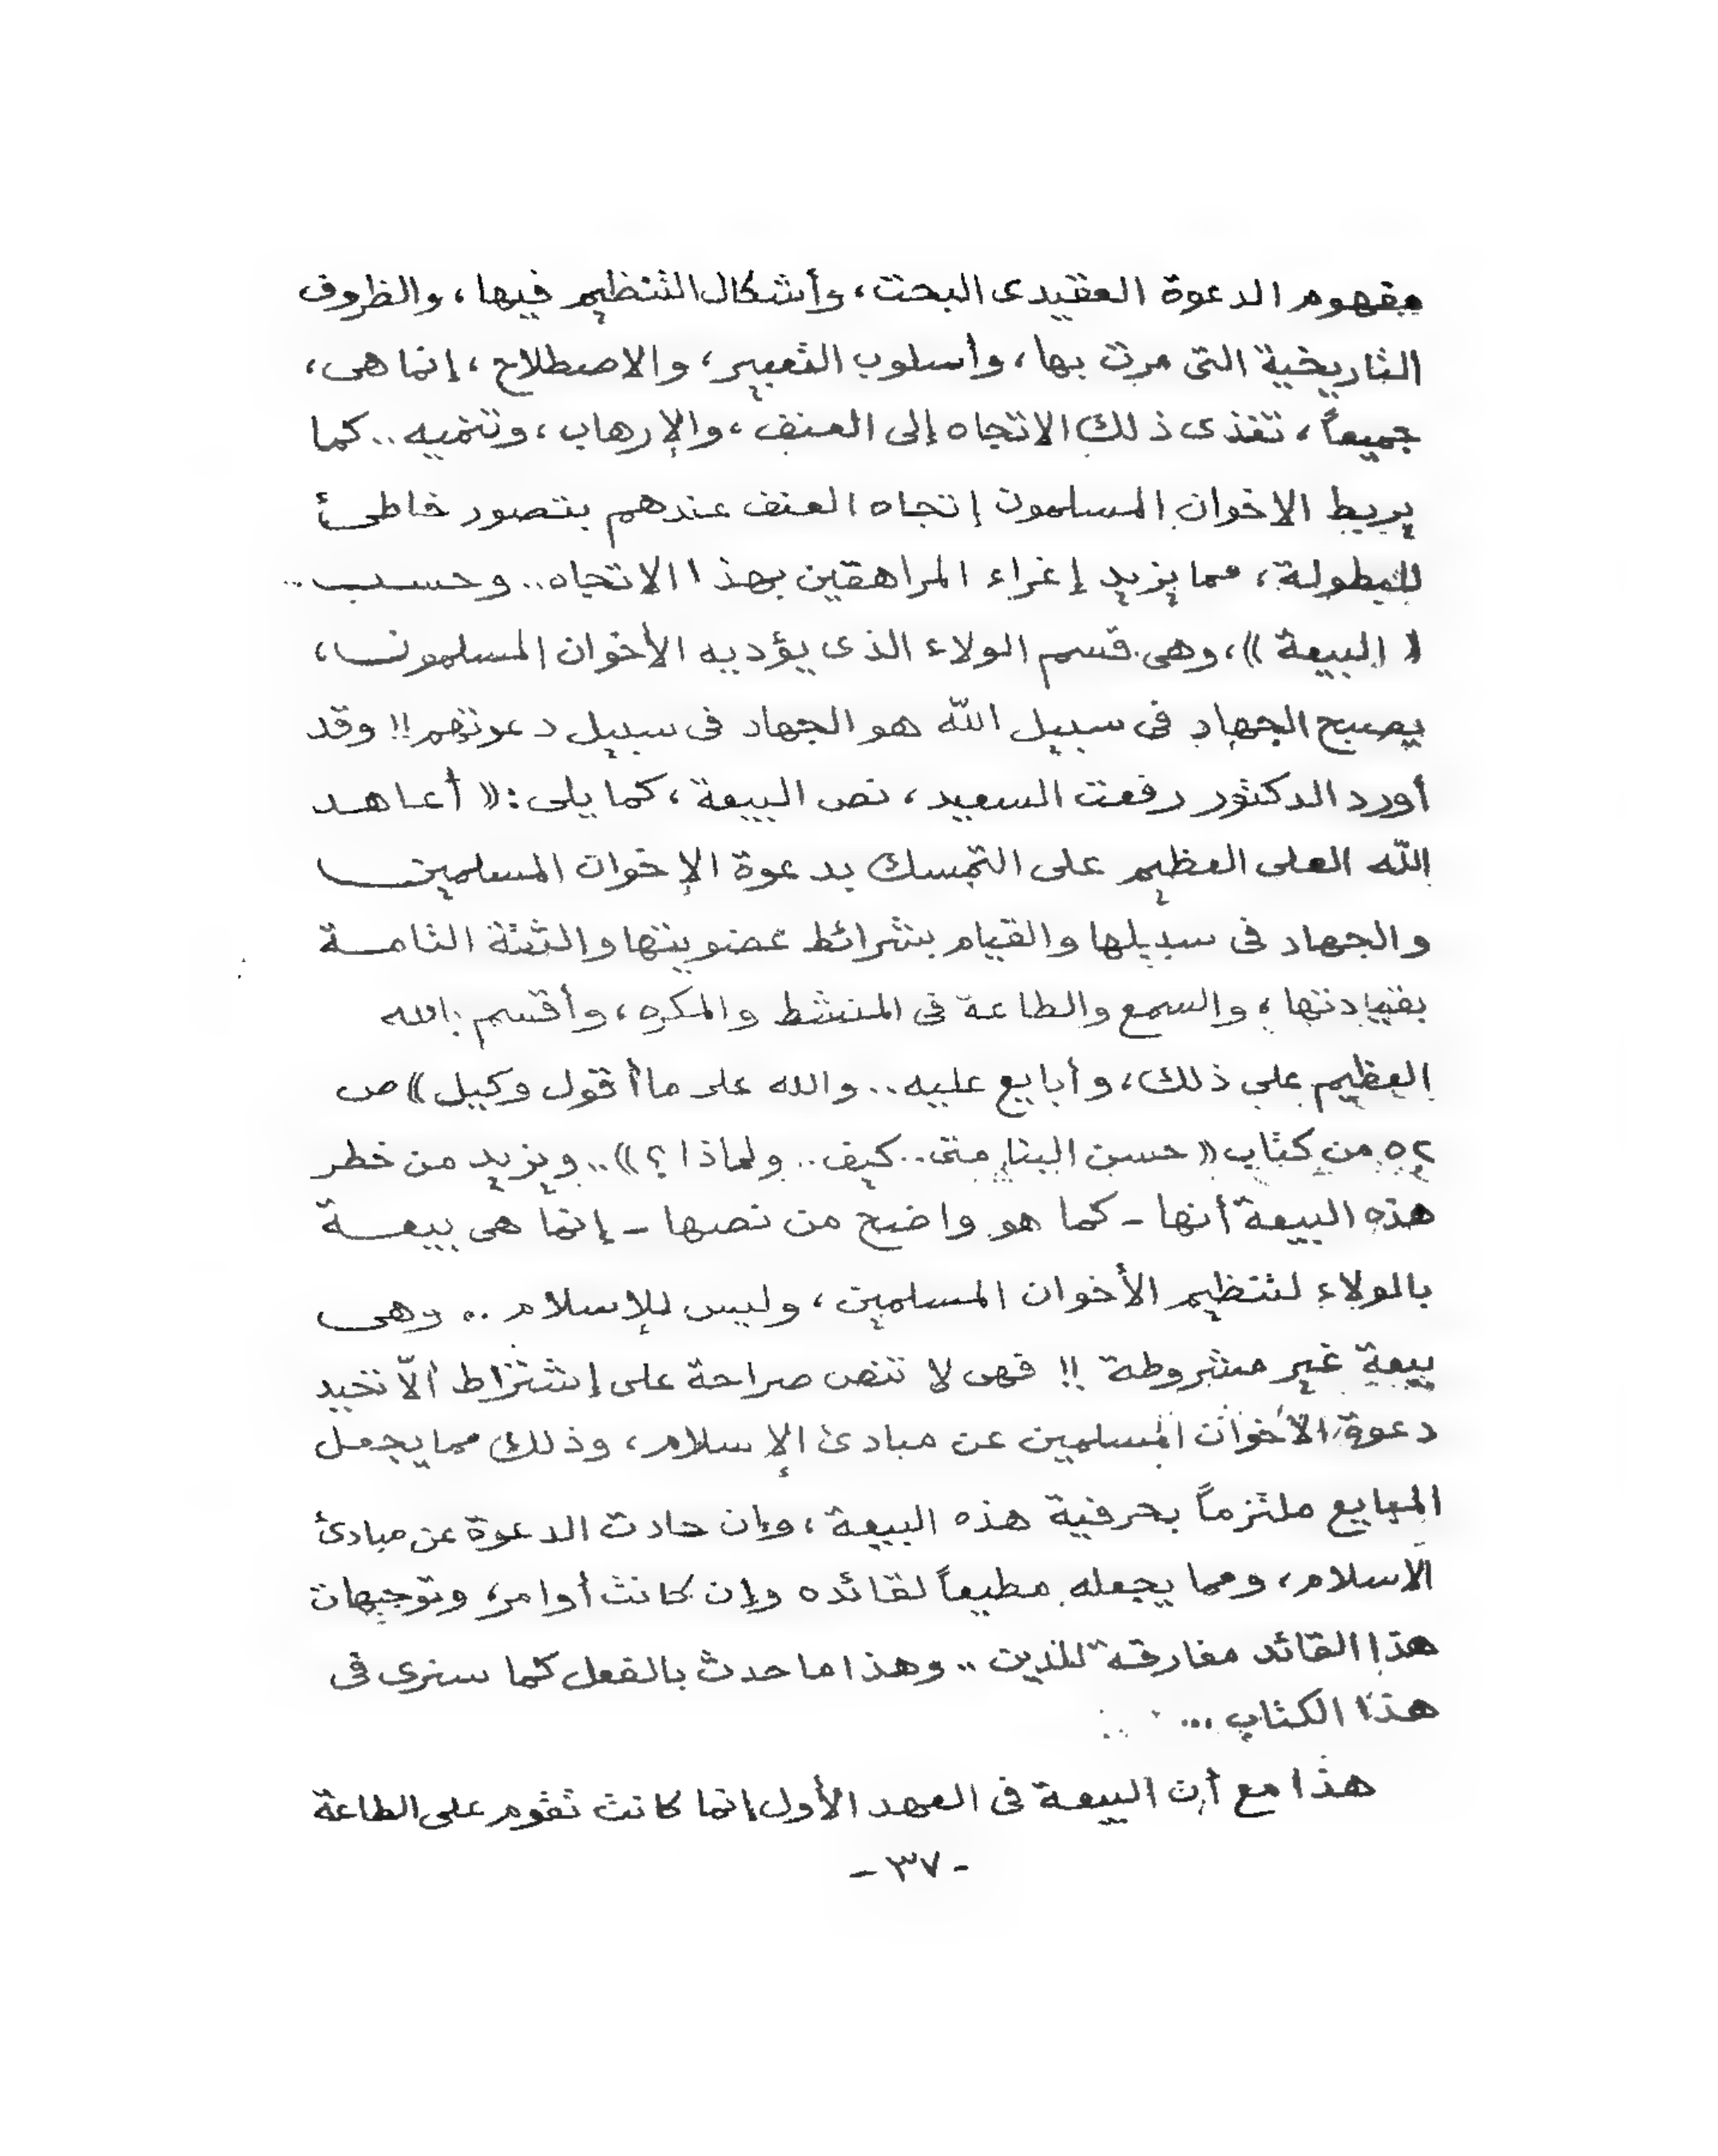 مفهوم الدعوة العقيدى البحت، وأشكال التنظيم فيها، والظروف
التاريخية التى مرت بها، وأسلوب التعبير، والاصطلاح، إنما هى،
جميعاً، تغذى ذلك الاتجاه إلى العنف، والإرهاب، وتنميه.. كما
يربط الاخوان المسلمون إتجاه العنف عندهم بتصور خاطئ
للبطولة، مما يزيد إغراء المراهقين بهذا الاتجاه.. وحسب..
« البيعة »، وهى قسم الولاء الذى يؤديه الأخوان المسلمون،
يصبح الجهاد فى سبيل الله هو الجهاد فى سبيل دعوتهم!! وقد
أورد الدكتور رفعت السعيد، نص البيعة، كما يلى: « أعاهد
الله العلى العظيم على التمسك بدعوة الإخوان المسلمين
والجهاد فى سبيلها والقيام بشرائط عضويتها والثقة التامة
بقيادتها، والسمع والطاعة فى المنشط والمكره، وأقسم بالله
العظيم على ذلك، وأبايع عليه.. والله على ما أقول وكيل » ص
٥٢ من كتاب « حسن البنا متى.. كيف.. ولماذا؟ ».. ويزيد من خطر
هذه البيعة أنها - كما هو واضح من نصها - إنما هى بيعة
بالولاء لتنظيم الأخوان المسلمين، وليس للإسلام.. وهى
بيعة غير مشروطة!! فهى لا تنص صراحة على إشتراط ألاّ تحيد
دعوة الأخوان المسلمين عن مبادئ الإسلام، وذلك مما يجعل
المبايع ملتزماً بحرفية هذه البيعة، وإن حادت الدعوة عن مبادئ
الاسلام، ومما يجعله مطيعاً لقائده وإن كانت أوامر، وتوجيهات
هذا القائد مفارقة للدين.. وهذا ما حدث بالفعل كما سنرى فى
هذا الكتاب...
هذا مع أن البيعة فى العهد الأول إنما كانت تقوم على الطاعة
- ٣٧ -